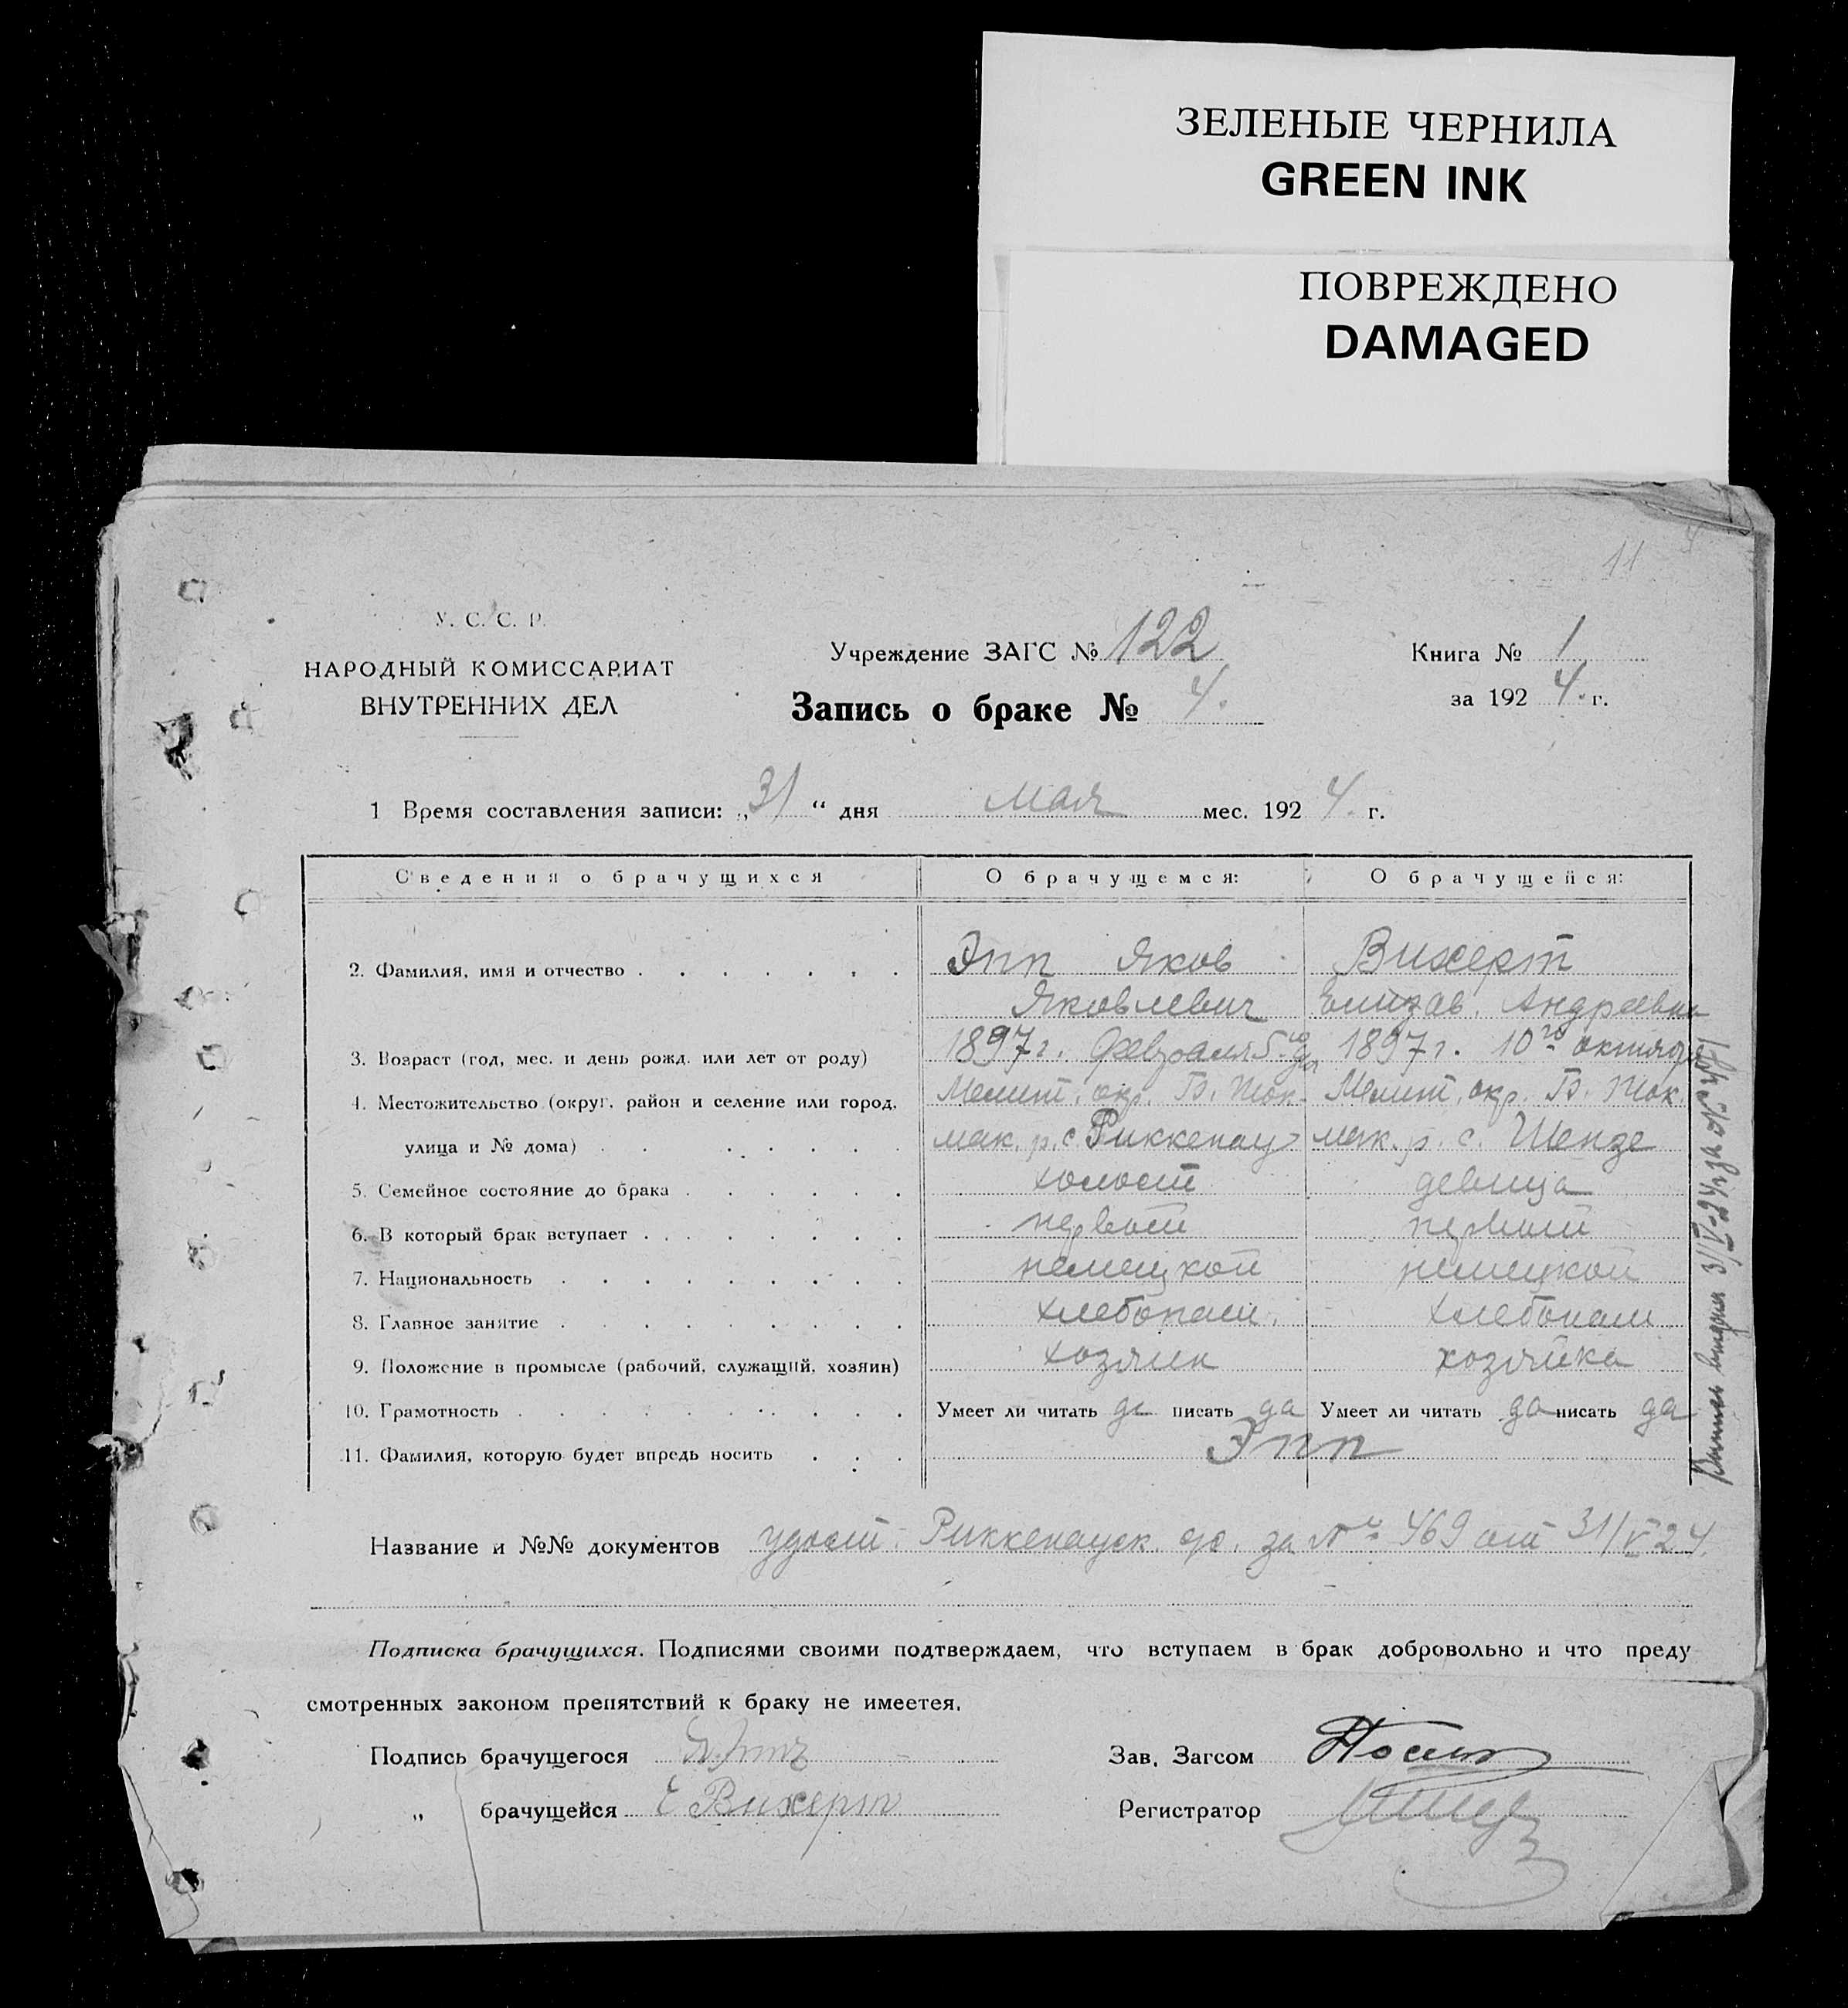 ЗЕЛЕНЫЕ ЧЕРНИЛА
GREEN INK
ПОВРЕЖДЕНО
DAMAGED
11
У. С. С. Р.
НАРОДНЫЙ КОМИССАРИАТ
ВНУТРЕННИХ ДЕЛ
Учреждение ЗАГС № 122
Запись о браке № 4.
Книга № 1
за 192 4. г.
1 Время составления записи: „ 31 “ дня мая мес. 192 4. г.
Сведения о брачущихся О брачущемся: О брачущейся:
2. Фамилия, имя и отчество Эпп Яков Вихерт
Яковлевич Елизав. Андреевна
3. Возраст (год, мес. и день рожд. или лет от роду) 1897 г. февраля 5го 1897 г. 10го октября
4. Местожительство (округ, район и селение или город, Мелит. окр. Б. Ток- Мелит. окр. Б. Ток.
улица и № дома) мак. р. с. Риккенау мак. р. с. Шензе
5. Семейное состояние до брака холост девица
6. В который брак вступает первый первый
7. Национальность немецкой немецкой
8. Главное занятие хлебопаш. хлебопаш.
9. Положение в промысле (рабочий, служащий, хозяин) хозяин хозяйка
10. Грамотность Умеет ли читать да писать да Умеет ли читать да писать да
11. Фамилия, которую будет впредь носить Эпп
Название и №№ документов удост. Риккенауск. за № 469 от 31/V 24.
Подписка брачущихся. Подписями своими подтверждаем, что вступаем в брак добровольно и что преду
смотренных законом препятствий к браку не имеетея.
Подпись брачущегося
Зав. Загсом
„ брачущейся Е Вихерт
Регистратор